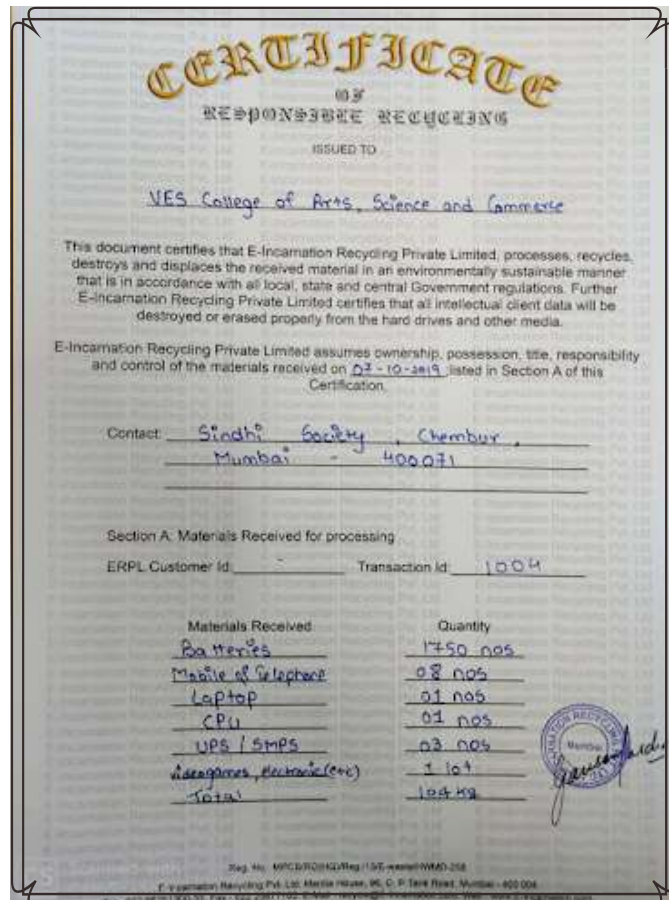 CERTIFICATE
OF
RESPONSIBLE RECYCLING
ISSUED TO
VES College of Arts, Science and Commerce
This document certifies that E-Incarnation Recycling Private Limited, processes, recycles,
destroys and displaces the received material in an environmentally sustainable manner
that is in accordance with all local, state and central Government regulations. Further
E-Incarnation Recycling Private Limited certifies that all intellectual client data will be
destroyed or erased properly from the hard drives and other media.
E-Incarnation Recycling Private Limited assumes ownership, possession, title, responsibility
and control of the materials received on 07-10-2019 listed in Section A of this
Certification.
Contact: Sindhi Society, Chembur,
Mumbai - 400071
Section A: Materials Received for processing
ERPL Customer Id: - Transaction Id: 1004
Materials Received Quantity
Batteries 1750 nos
Mobile & Telephone 08 nos
Laptop 01 nos
CPU 01 nos
UPS / SMPS 03 nos
videogames, electronic (etc) 1 lot
Total 104 kg
Mumbai
Reg. No.
E-Incarnation Recycling Pvt. Ltd. House, 96, C. P. Tank Road, Mumbai - 400 004